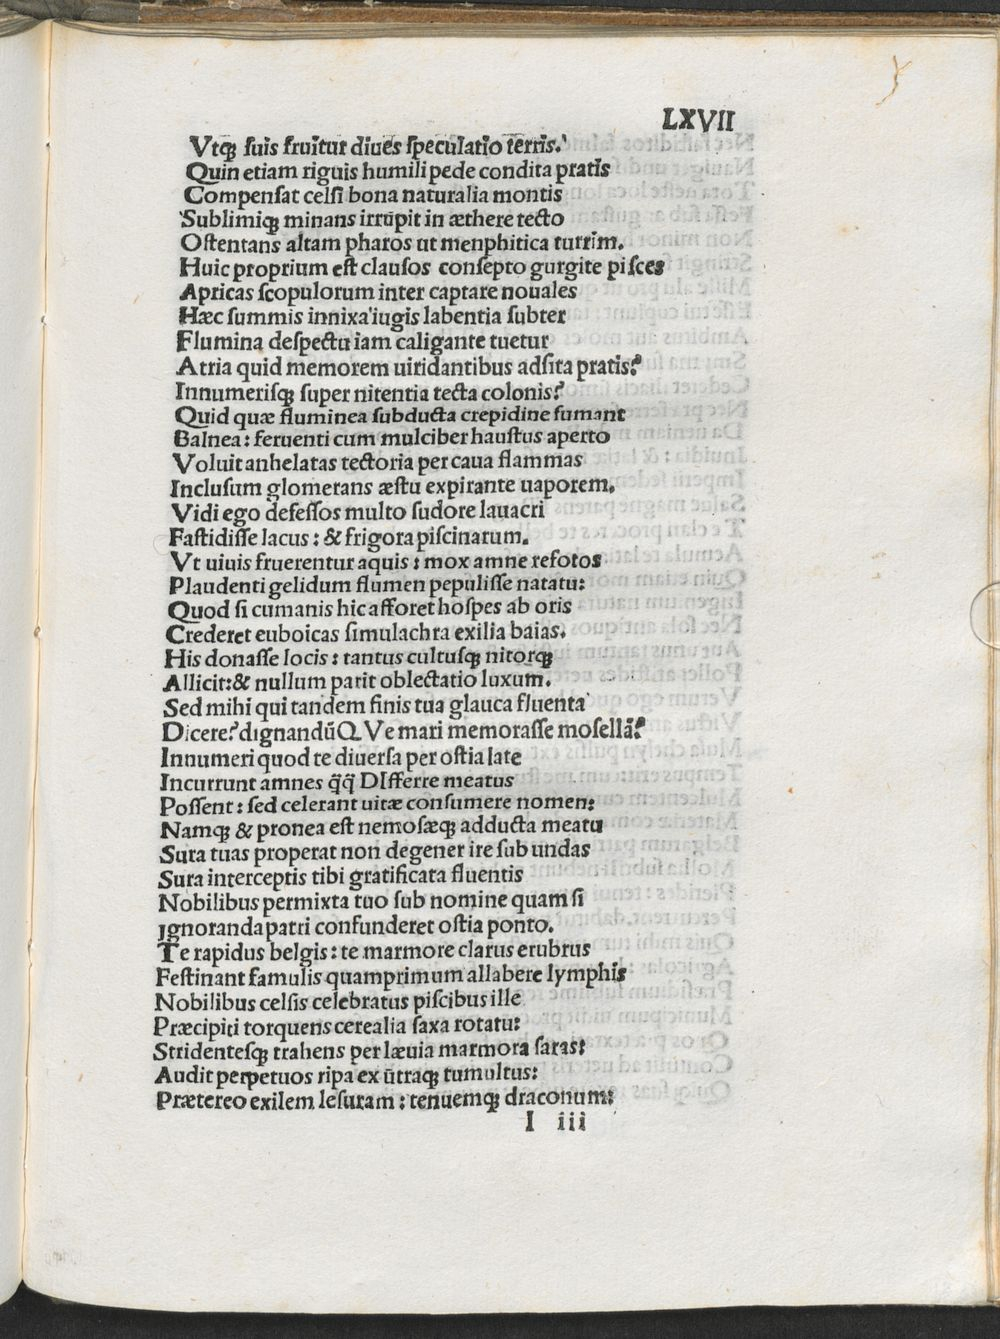 LXVII
Vtqꝫ suis fruitur diues speculatio terris.
Quin etiam riguis humili pede condita pratis
Compensat celsi bona naturalia montis
Sublimiqꝫ minans irrũpit in æthere tecto
Ostentans altam pharos ut menphitica turrim.
Huic proprium est clausos consepto gurgite pisces
Apricas scopulorum inter captare nouales
Hæc summis innixa iugis labentia subter
Flumina despectu iam caligante tuetur
Atria quid memorem uiridantibus adsita pratis?
Innumerisqꝫ super nitentia tecta colonis?
Quid quæ fluminea subducta crepidine fumant
Balnea: feruenti cum mulciber haustus aperto
Voluit anhelatas tectoria per caua flammas
Inclusum glomerans æstu expirante uaporem.
Vidi ego defessos multo sudore lauacri
Fastidisse lacus: & frigora piscinarum.
Vt uiuis fruerentur aquis: mox amne refotos
Plaudenti gelidum flumen pepulisse natatu:
Quod si cumanis hic afforet hospes ab oris
Crederet euboicas simulachra exilia baias.
His donasse locis: tantus cultusqꝫ nitorqꝫ
Allicit:& nullum parit oblectatio luxum.
Sed mihi qui tandem finis tua glauca fluenta
Dicere? dignandũQVe mari memorasse mosellã?
Innumeri quod te diuersa per ostia late
Incurrunt amnes q̃q̃ DIfferre meatus
Possent: sed celerant uitæ consumere nomen:
Namqꝫ & pronea est nemosæqꝫ adducta meatu
Sura tuas properat non degener ire sub undas
Sura interceptis tibi gratificata fluentis
Nobilibus permixta tuo sub nomine quam si
ignoranda patri confunderet ostia ponto.
Te rapidus belgis: te marmore clarus erubrus
Festinant famulis quamprimum allabere lymphis
Nobilibus celsis celebratus piscibus ille
Præcipiti torquens cerealia saxa rotatu:
Stridentesqꝫ trahens per læuia marmora saras:
Audit perpetuos ripa ex ũtraqꝫ tumultus:
Prætereo exilem lesuram: tenuemqꝫ draconum:
I iii